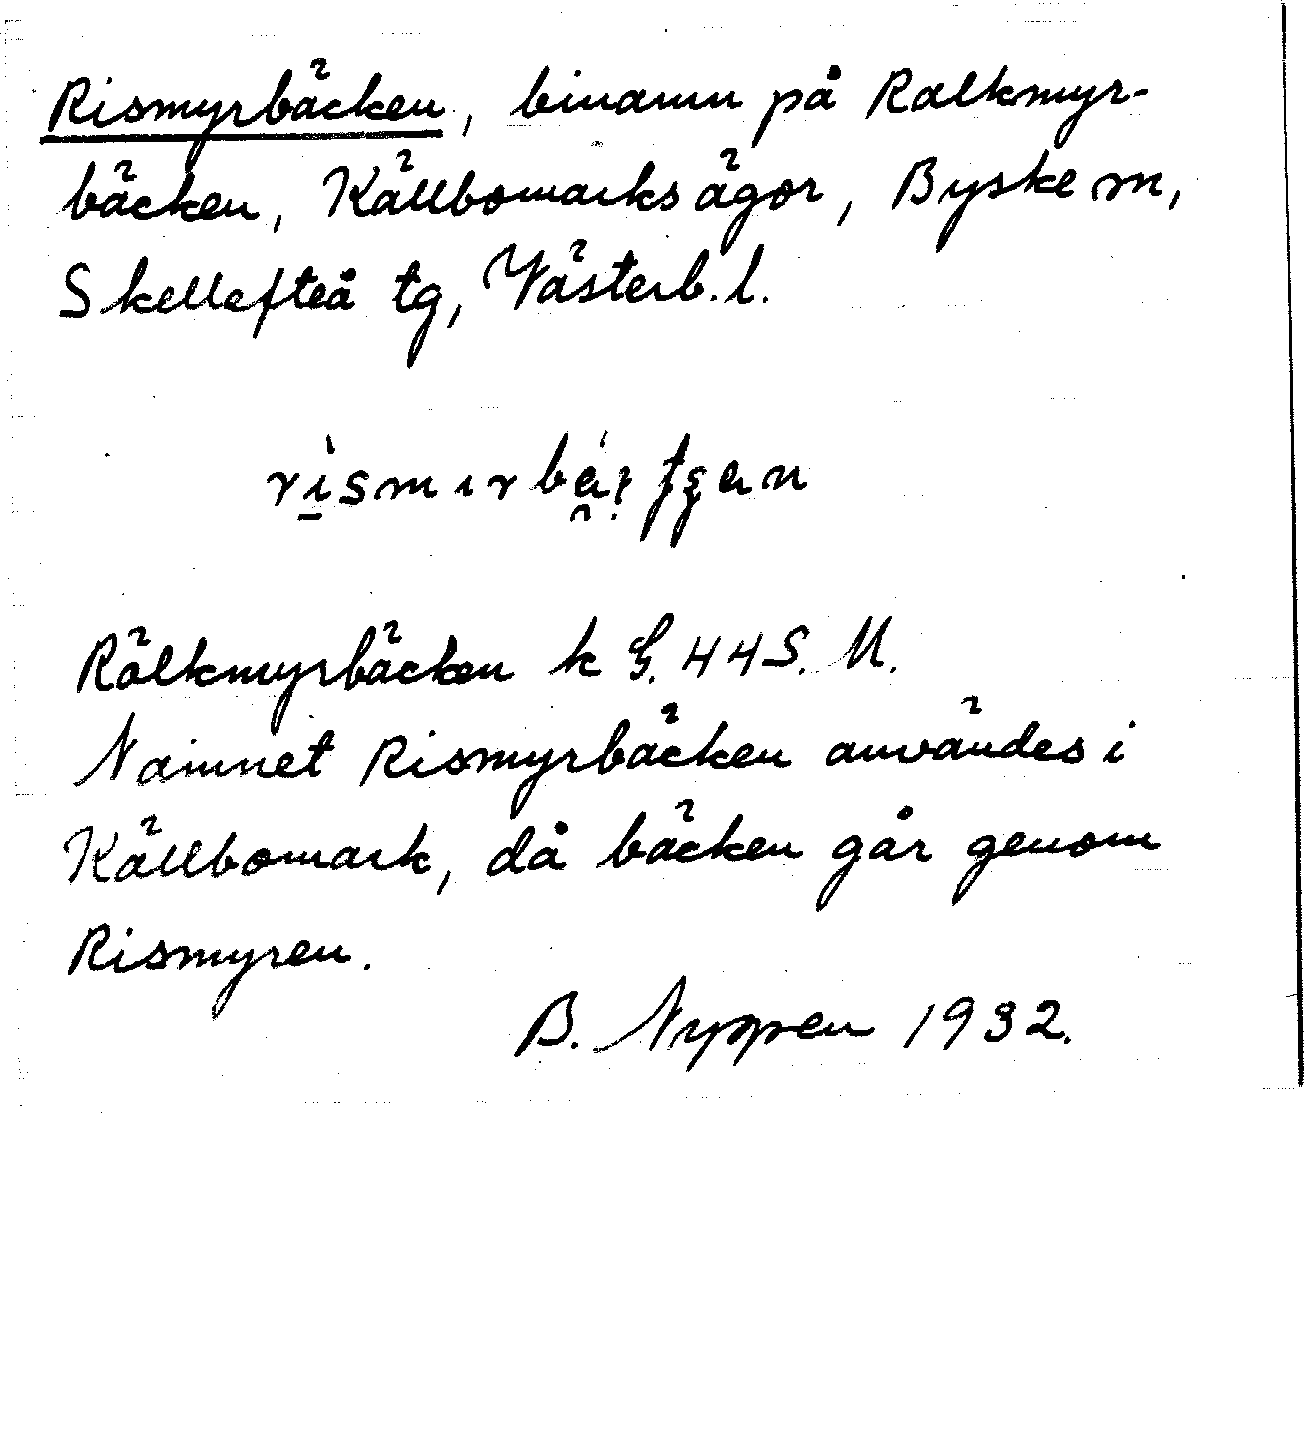 Rismyrbäcken, binamn på Ralkmyr-
bäcken, Källbomarks ägor, Byske sn,
Skellefteå tg, Västerb. l.
Rälkmyrbäcken k G. 44 S. U.
Namnet Rismyrbäcken användes i
Källbomark, då bäcken går genom
Rismyren.
B. Nyppen 1932.